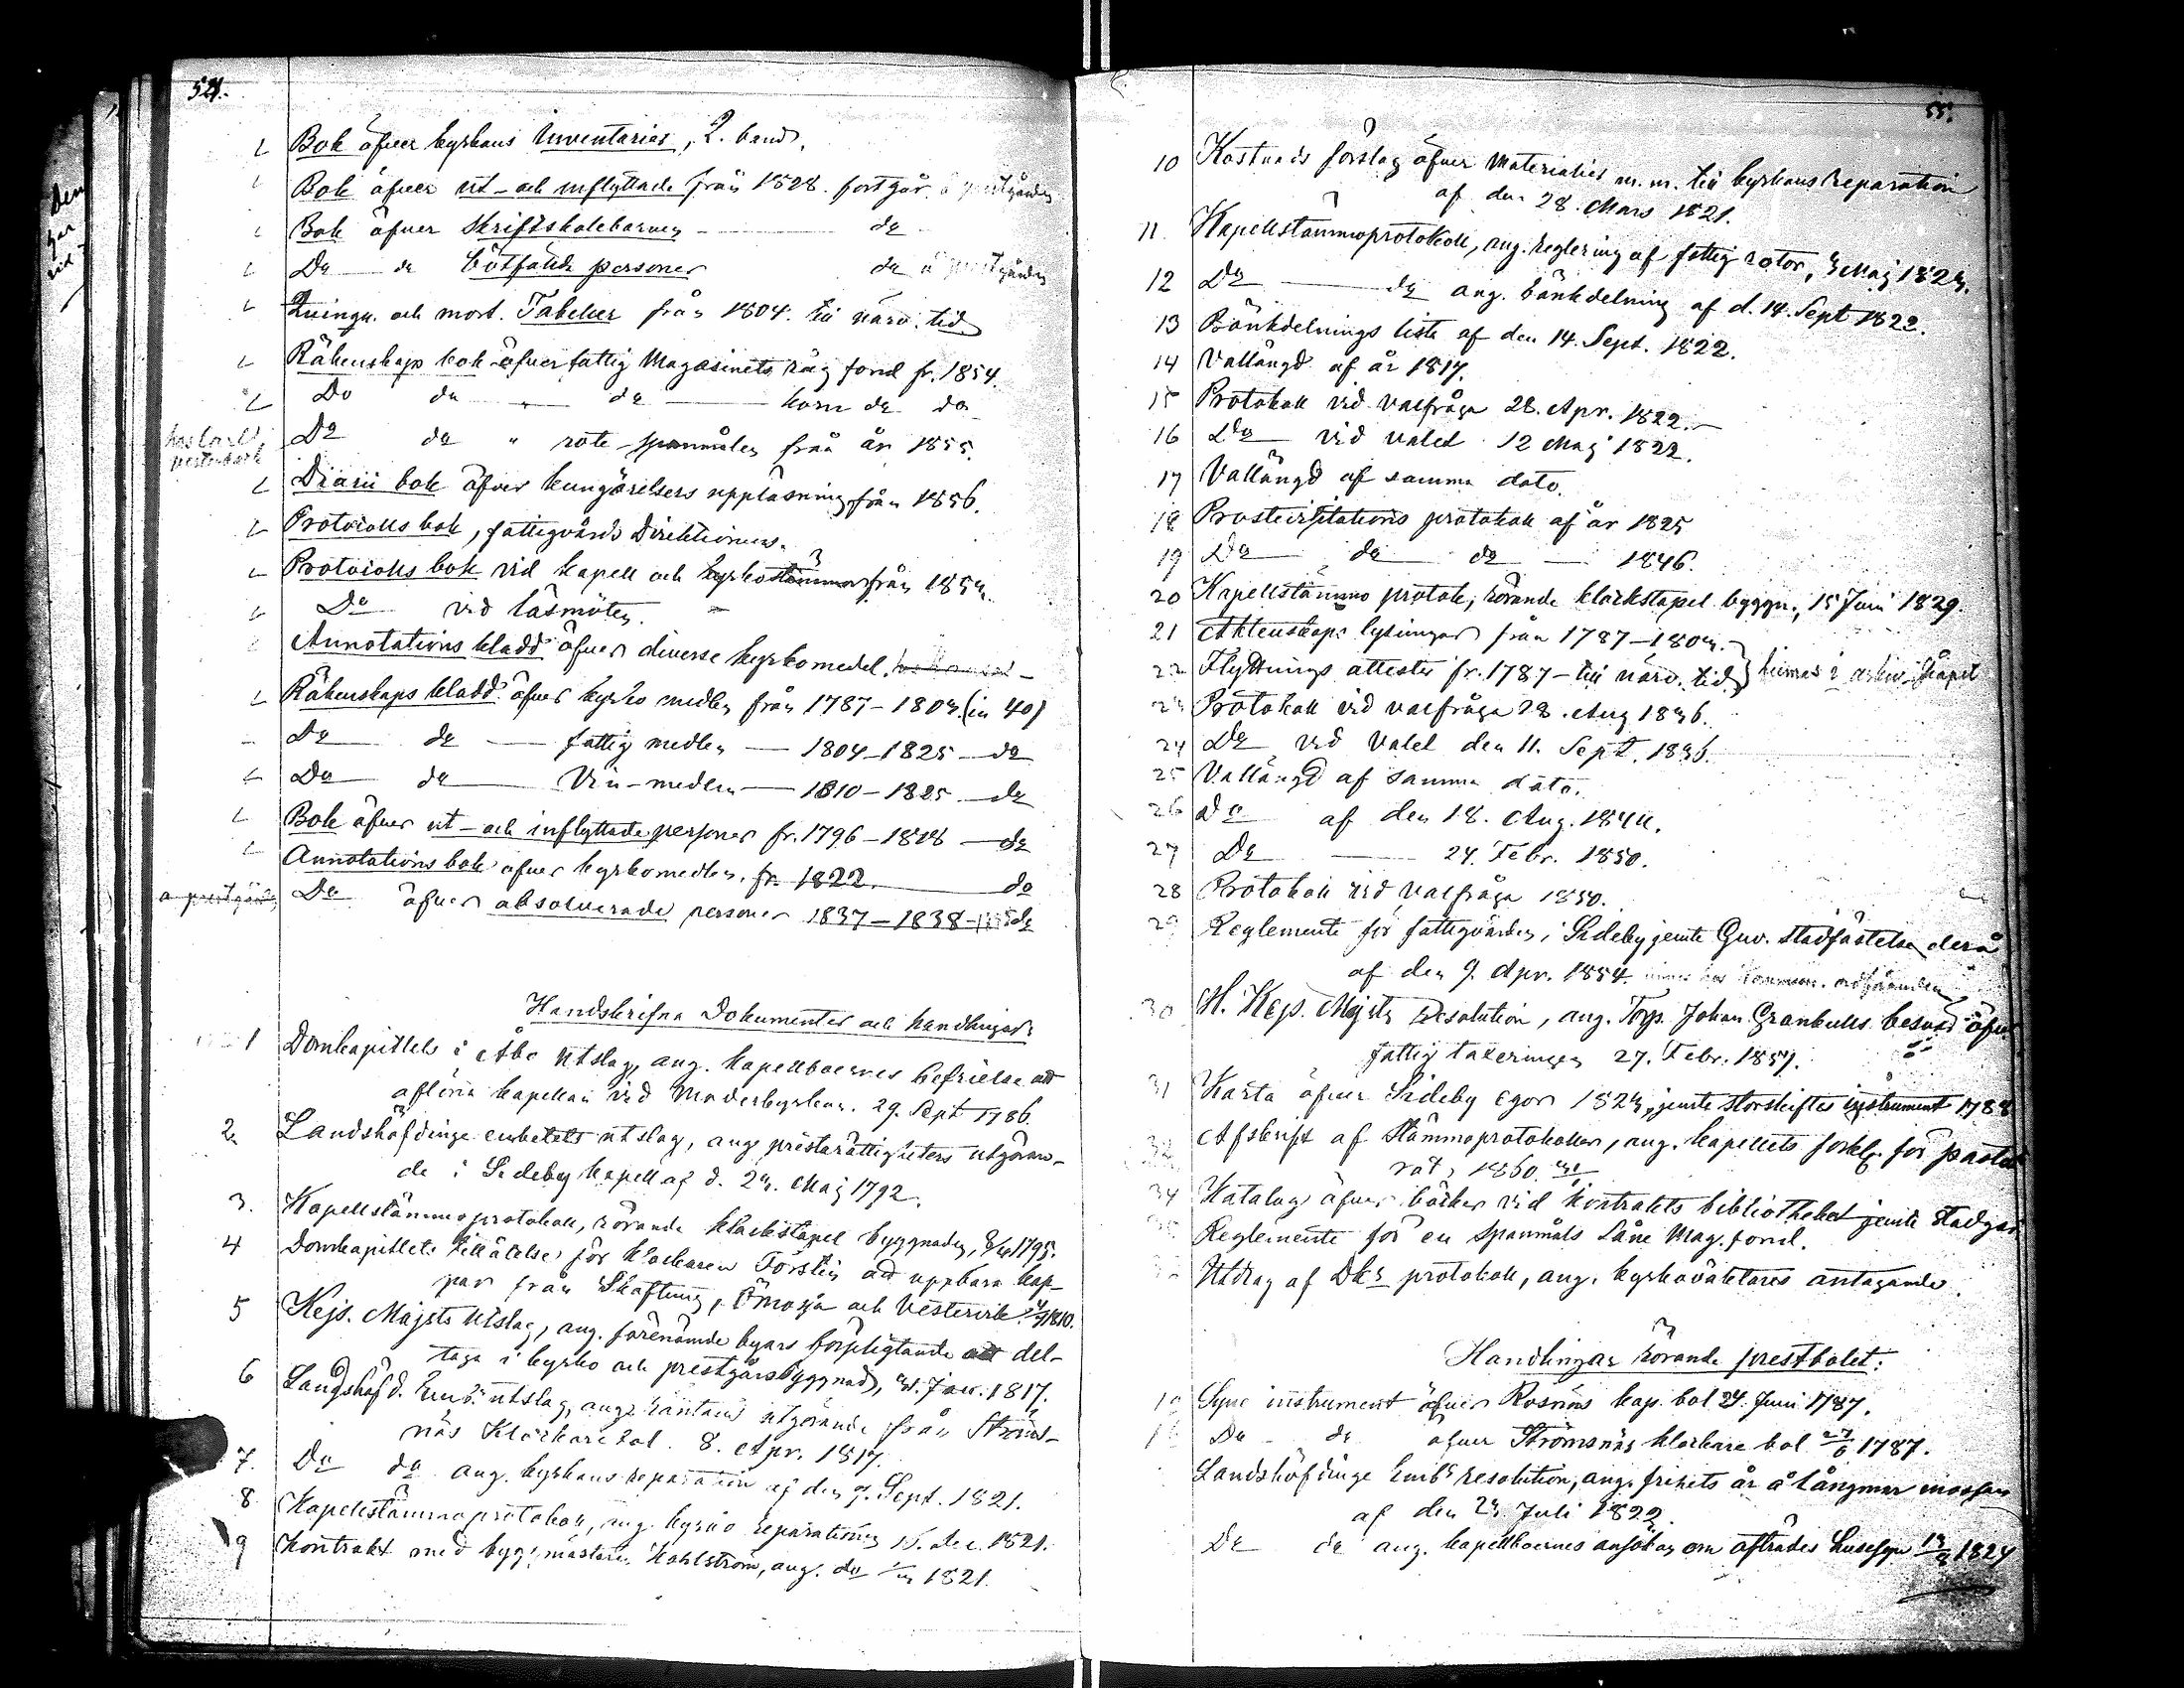 54.
Bok öfver kyrkans Inventarier, 2. band.
Bok öfver ut- och inflyttade från 1828. fortgår. å prestgården
Bok öfver Skriftskolebarnen — do
Do — do bötfällda personer do å prestgården
Qvinqu. och mort. Tabeller från 1804. till närv. tid
Räkenskaps bok öfver fattig Magasinets råg fond fr. 1854.
Do do " — do — korn do do
Do do " rote-spanmålen från år 1855.
Diarii bok öfver kungörelsers uppläsning från 1856.
Protocolls bok, fattigvårds Direktionens.
Protocolls bok vid kapell och kyrkostämmor från
Do vid läsmöten.
Annotations bladd öfver diverse kyrkomedel.
Räkenskaps bladd öfver kyrko medlen från 1787– (in 4o)
Do — do — fattig medlen — 1804–1825 — do
Do — do — Vin-medlen — 1810–1825 — do
Bok öfver ut- och inflyttade personer fr. 1796–1818 — do
Annotations bok öfver kyrkomedlen. fr. 1822. — do
å prestgården Do öfver absolverade personer 1837–1838 do
Handskrifna Dokumenter och handlingar:
1 Domkapittels i Åbo Utslag, ang. kapellboernes befrielse att
aflöna kapellan vid Moderkyrkan. 29. Sept. 1786.
2. Landshöfdinge embetets utslag, ang. prästarättigheters utgöran-
de i Sideby kapell af d. Maj 1792.
3. Kapellstämmoprotokoll, rörande klockstapel byggnaden, 1795.
4 Domkapitlets tillåtelse för klockaren Forstén att uppbära kap-
par från Skaftung, Ömossa och Vestervik 1810.
5 Kejs. Majsts Utslag, ang. förenämde byars förpligtande att del-
taga i kyrko och prestgårdsbyggnad, Jan. 1817.
6 Landshöfd. Emb:s utslag, ang. räntans utgörande från Ströms-
näs Klockare bol. 8. Apr. 1817.
7. Do do ang. kyrkans reparation af den 7. Sept. 1821.
8 Kapellstämmoprotokoll, ang. kyrko reparationen 15. dec. 1821.
9 Kontrakt med byggmästare Kahlström, ang. do 1821.
55.
10 Kostnads förslag öfver Materialier m. m. till kyrkans reparation
af den 28. Mars 1821.
11. Kapellstämmoprotokoll, ang. reglering af fattig rotor, Maj
12 Do — do ang. bänkdelning af d. 14. Sept 1822.
13 Bänkdelnings lista af den 14. Sept. 1822.
14 Vallängd af år 1817.
15 Protokoll vid valfråga 28. Apr. 1822.
16 Do — vid valet 12 Maj 1822.
17 Vallängd af samma dato.
18 Prostvisitations protokoll af år 1825
19 Do — do — do — 1846.
20 Kapellstämmo protok, rörande klockstapel byggn., 15 Juni 1829.
21 Äktenskaps lysningar från 1787–
22 Flyttnings attester fr. 1787 – till närv. tid } finnas i arkiv-skåpet
23 Protokoll vid valfråga 28. Aug 1836.
24 Do vid valet den 11. Sept. 1836.
25 Vallängd af samma dato.
26 Do af den 18. Aug.
27 Do — 24. Febr. 1850.
28 Protokoll vid valfråga 1850.
29 Reglemente för fattigvården i Sideby jemte Guv. stadfästelse derå
af den 9. Apr. 1854.
30 H. Kejs. Majsts Resolution, ang. Torp. Johan Grankulls besvär öfver
fattig taxeringen 27. Febr. 1857.
31 Karta öfver Sideby egor jemte storskiftes instrument 1788
32 Afskrift af Stämmoprotokoller, ang. kapellets förkl. för pasto-
rat, 1860.
34 Katalog öfver böcker vid kontrakts bibliotheket jemte stadgar
Reglemente för en Spannmåls Låne Mag. fond.
Utdrag af Dks protokoll, ang. kyrkovaktares antagande.
Handlingar rörande prestbolet:
Syne instrument öfver Rosnäs kap. bol 27. Juni 1787.
Do – do öfver Strömsnäs klockare bol 27/6 1787.
Landshöfdinge Emb:s resolution, ang. frihets år å Långmar mossen
af den Juli 1822.
Do do ang. kapellboernes ansökan om afträdes husesyn